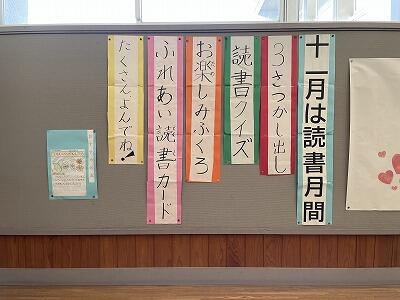 十一月は読書月間
3さつかし出し
読書クイズ
お楽しみふくろ
ふれあい読書カード
たくさんよんでね!